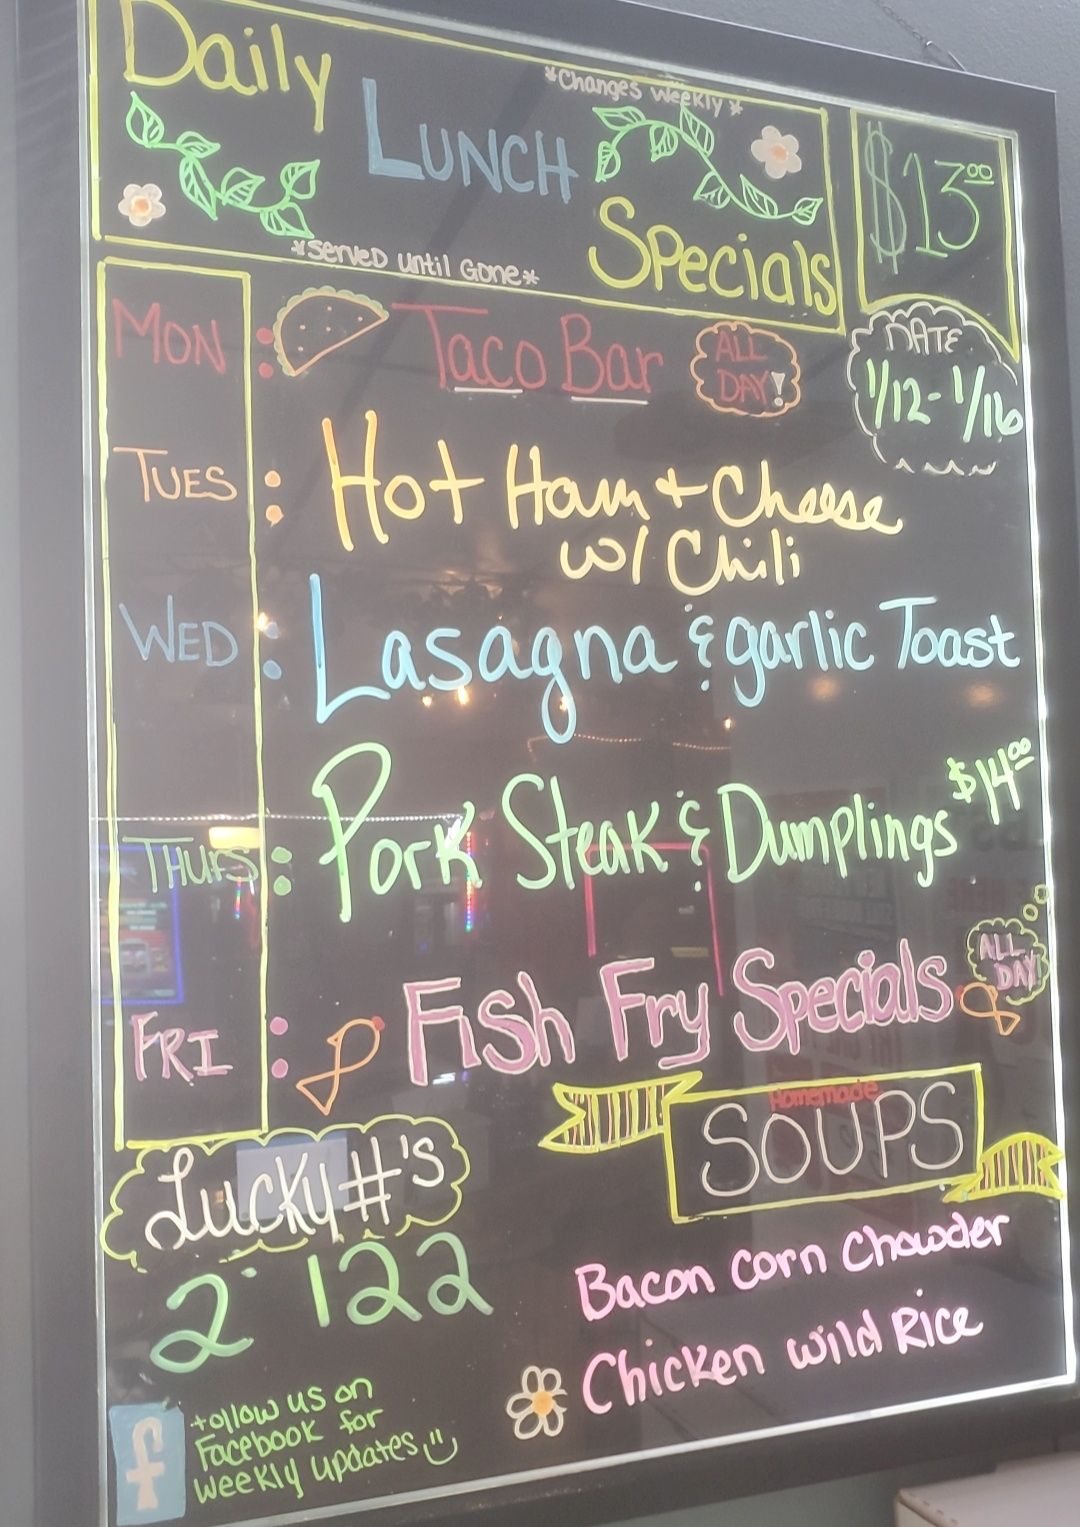 Daily
*Changes Weekly*
LUNCH
Specials
*Served Until Gone*
$13.00
DATE
1/12-1/16
MON : Taco Bar ALL DAY!
TUES : Hot Ham + Cheese
w/ Chili
WED : Lasagna & garlic Toast
THURS : Pork Steak & Dumplings $14.00
FRI : Fish Fry Specials ALL DAY!
Homemade
SOUPS
Bacon Corn Chowder
Chicken Wild Rice
Lucky #'s
2 122
follow us on
Facebook for
weekly updates
f